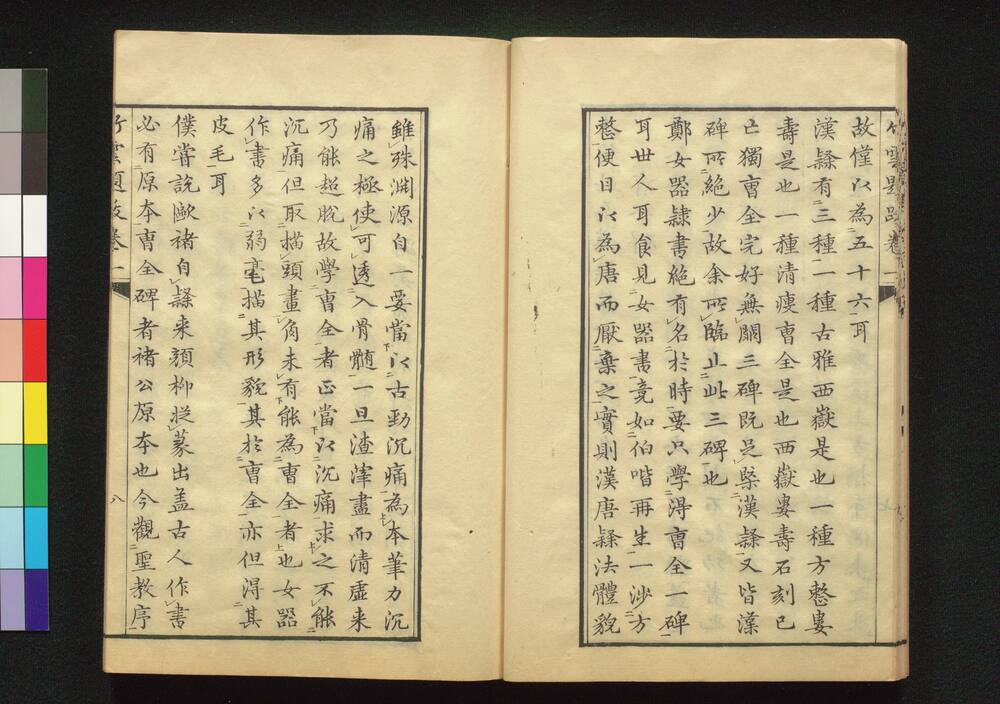 竹雲題跋卷一
故僅以為五十六耳
漢隸有三種一種古雅西嶽是也一種方整婁
壽是也一種清瘦曺全是也西嶽婁壽石刻已
亡獨曺全完好無闕三碑既足槩漢隸又皆漢
碑所絶少故余所臨止此三碑也
鄭女器隸書絶有名於時要只學淂曺全一碑
耳世人耳食見女器書竟如伯喈再生一涉方
整便目以為唐而厭棄之實則漢唐隸法體貌
雖殊淵源自一要當以古勁沉痛為本筆力沉
痛之極使可透入骨髓一旦渣滓盡而清虛来
乃能超脫故學曺全者正當以沉痛求之不能
沉痛但取描頭畫角未有能為曺全者也女器
作書多以弱毫描其形貌其於曺全亦但淂其
皮毛耳
僕嘗說歐禇自隸来顏柳從篆出盖古人作書
必有原本曺全碑者禇公原本也今觀聖教序
竹雲題跋卷一
八